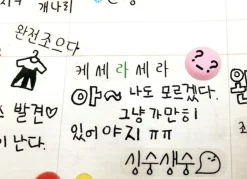 개나리
완전조으다
케 세 라 세 라
아~ 나도 모르겠다.
그냥 가만히
있어야지 ㅠㅠ
발견♡
난다.
싱숭생숭